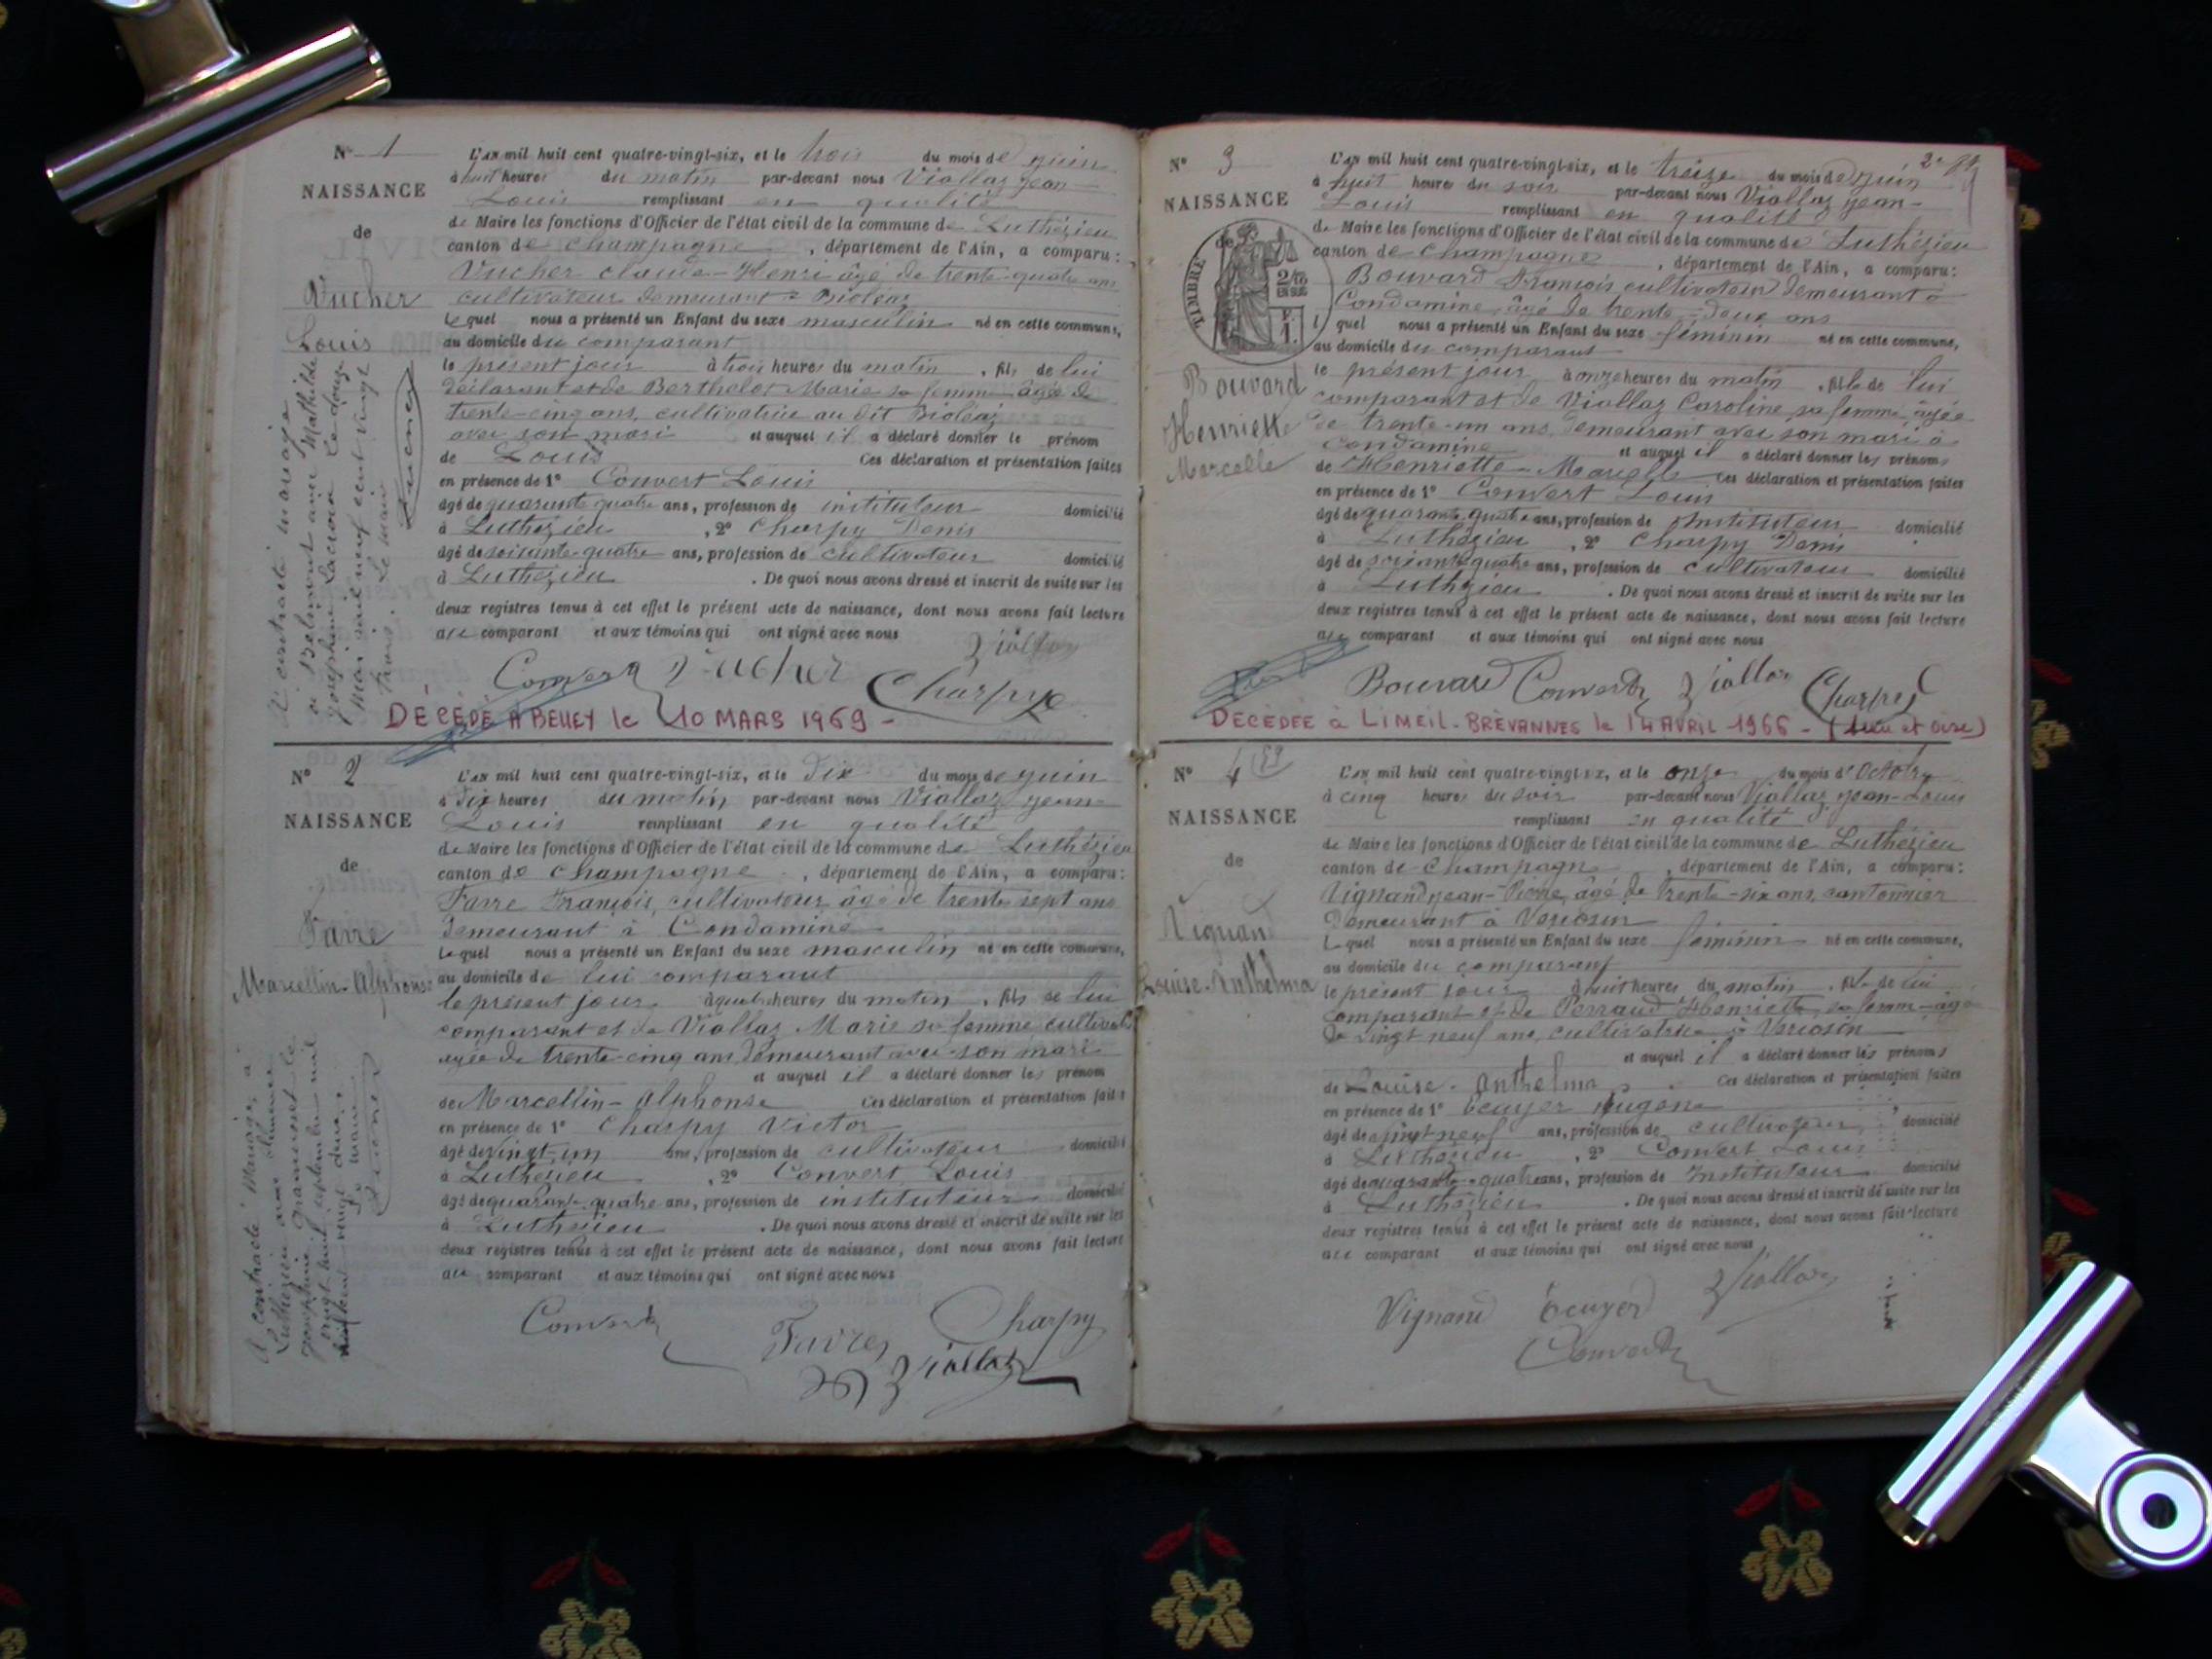 N° 1
NAISSANCE
de
Vucher
Louis
A contracté mariage
à Belmont avec Mathilde
Joséphine Lacroix le douze
Mai mil neuf cent vingt
trois. Le Maire
L'an mil huit cent quatre-vingt-six, et le trois du mois de juin
à huit heures du matin par-devant nous Viollaz Jean-
Louis remplissant en qualité
de Maire les fonctions d'Officier de l'état civil de la commune de Luthézieu
canton de Champagne, département de l'Ain, a comparu:
Vucher Claude-Henri âgé de trente-quatre ans
cultivateur demeurant à Bioléaz
Lequel nous a présenté un Enfant du sexe masculin né en cette commune,
au domicile du comparant
le présent jour à trois heures du matin, fils de lui
déclarant et de Berthelot Marie sa femme âgée de
trente-cinq ans, cultivatrice au dit Bioléaz
avec son mari et auquel il a déclaré donner le prénom
de Louis Ces déclaration et présentation faites
en présence de 1° Convert Louis
âgé de quarante quatre ans, profession de instituteur domicilié
à Luthézieu, 2° Charpy Denis
âgé de soixante-quatre ans, profession de cultivateur domicilié
à Luthézieu. De quoi nous avons dressé et inscrit de suite sur les
deux registres tenus à cet effet le présent acte de naissance, dont nous avons fait lecture
au comparant et aux témoins qui ont signé avec nous
Viollaz
Convert Vucher Charpy
DÉCÉDÉ A BELLEY le 10 MARS 1969 -
N° 2
NAISSANCE
de
Favre
Marcellin-Alphonse
A contracté Mariage à
Luthézieu avec
Joséphine le
vingt huit septembre mil
neuf cent douze
Le Maire
L'an mil huit cent quatre-vingt-six, et le dix du mois de juin
à dix heures du matin par-devant nous Viollaz Jean-
Louis remplissant en qualité
de Maire les fonctions d'Officier de l'état civil de la commune de Luthézieu
canton de Champagne, département de l'Ain, a comparu:
Favre François, cultivateur, âgé de trente sept ans
demeurant à Condamine
Lequel nous a présenté un Enfant du sexe masculin né en cette commune,
au domicile de lui comparant
le présent jour à quatre heures du matin, fils de lui
comparant et de Viollaz Marie sa femme cultivat
âgée de trente-cinq ans demeurant avec son mari
et auquel il a déclaré donner les prénom
de Marcellin-Alphonse Ces déclaration et présentation faites
en présence de 1° Charpy Victor
âgé de vingt-un ans, profession de cultivateur domicilié
à Luthézieu, 2° Convert Louis
âgé de quarante-quatre ans, profession de instituteur domicilié
à Luthézieu. De quoi nous avons dressé et inscrit de suite sur les
deux registres tenus à cet effet le présent acte de naissance, dont nous avons fait lecture
au comparant et aux témoins qui ont signé avec nous
Convert Favre Charpy
Viollaz
N° 3
NAISSANCE
de
TIMBRE
Bouvard
Henriette
Marcelle
L'an mil huit cent quatre-vingt-six, et le treize du mois de juin
à huit heures du soir par-devant nous Viollaz Jean-
Louis remplissant en qualité
de Maire les fonctions d'Officier de l'état civil de la commune de Luthézieu
canton de Champagne, département de l'Ain, a comparu:
Bouvard François, cultivateur demeurant à
Condamine, âgé de trente-deux ans
Lequel nous a présenté un Enfant du sexe féminin né en cette commune,
au domicile du comparant
le présent jour à onze heures du matin, fille de lui
comparant et de Viollaz Caroline sa femme âgée
de trente-un ans, demeurant avec son mari à
Condamine et auquel il a déclaré donner les prénoms
de Henriette-Marcelle Ces déclaration et présentation faites
en présence de 1° Convert Louis
âgé de quarante-quatre ans, profession de Instituteur domicilié
à Luthézieu, 2° Charpy Denis
âgé de soixante quatre ans, profession de cultivateur domicilié
à Luthézieu. De quoi nous avons dressé et inscrit de suite sur les
deux registres tenus à cet effet le présent acte de naissance, dont nous avons fait lecture
au comparant et aux témoins qui ont signé avec nous
Bouvard Convert Viollaz Charpy
DÉCÉDÉE à LIMEIL-BRÉVANNES le 14 AVRIL 1966 - (Seine et Oise)
N° 4
NAISSANCE
de
Vignand
Louise-Anthelma
L'an mil huit cent quatre-vingt-six, et le onze du mois d'Octobre
à cinq heures du soir par-devant nous Viollaz Jean-Louis
remplissant en qualité
de Maire les fonctions d'Officier de l'état civil de la commune de Luthézieu
canton de Champagne, département de l'Ain, a comparu:
Vignand Jean-Pierre, âgé de trente-six ans, cantonnier
demeurant à Vogiosin
Lequel nous a présenté un Enfant du sexe féminin né en cette commune,
au domicile du comparant
le présent jour à huit heures du matin, fille de lui
comparant et de Perraud Henriette sa femme âgée
de vingt neuf ans, cultivatrice à
et auquel il a déclaré donner les prénoms
de Louise-Anthelma Ces déclaration et présentation faites
en présence de 1° Ecuyer Eugène
âgé de vingt neuf ans, profession de cultivateur domicilié
à Luthézieu, 2° Convert Louis
âgé de quarante-quatre ans, profession de Instituteur domicilié
à Luthézieu. De quoi nous avons dressé et inscrit de suite sur les
deux registres tenus à cet effet le présent acte de naissance, dont nous avons fait lecture
au comparant et aux témoins qui ont signé avec nous
Vignand Ecuyer Viollaz
Convert